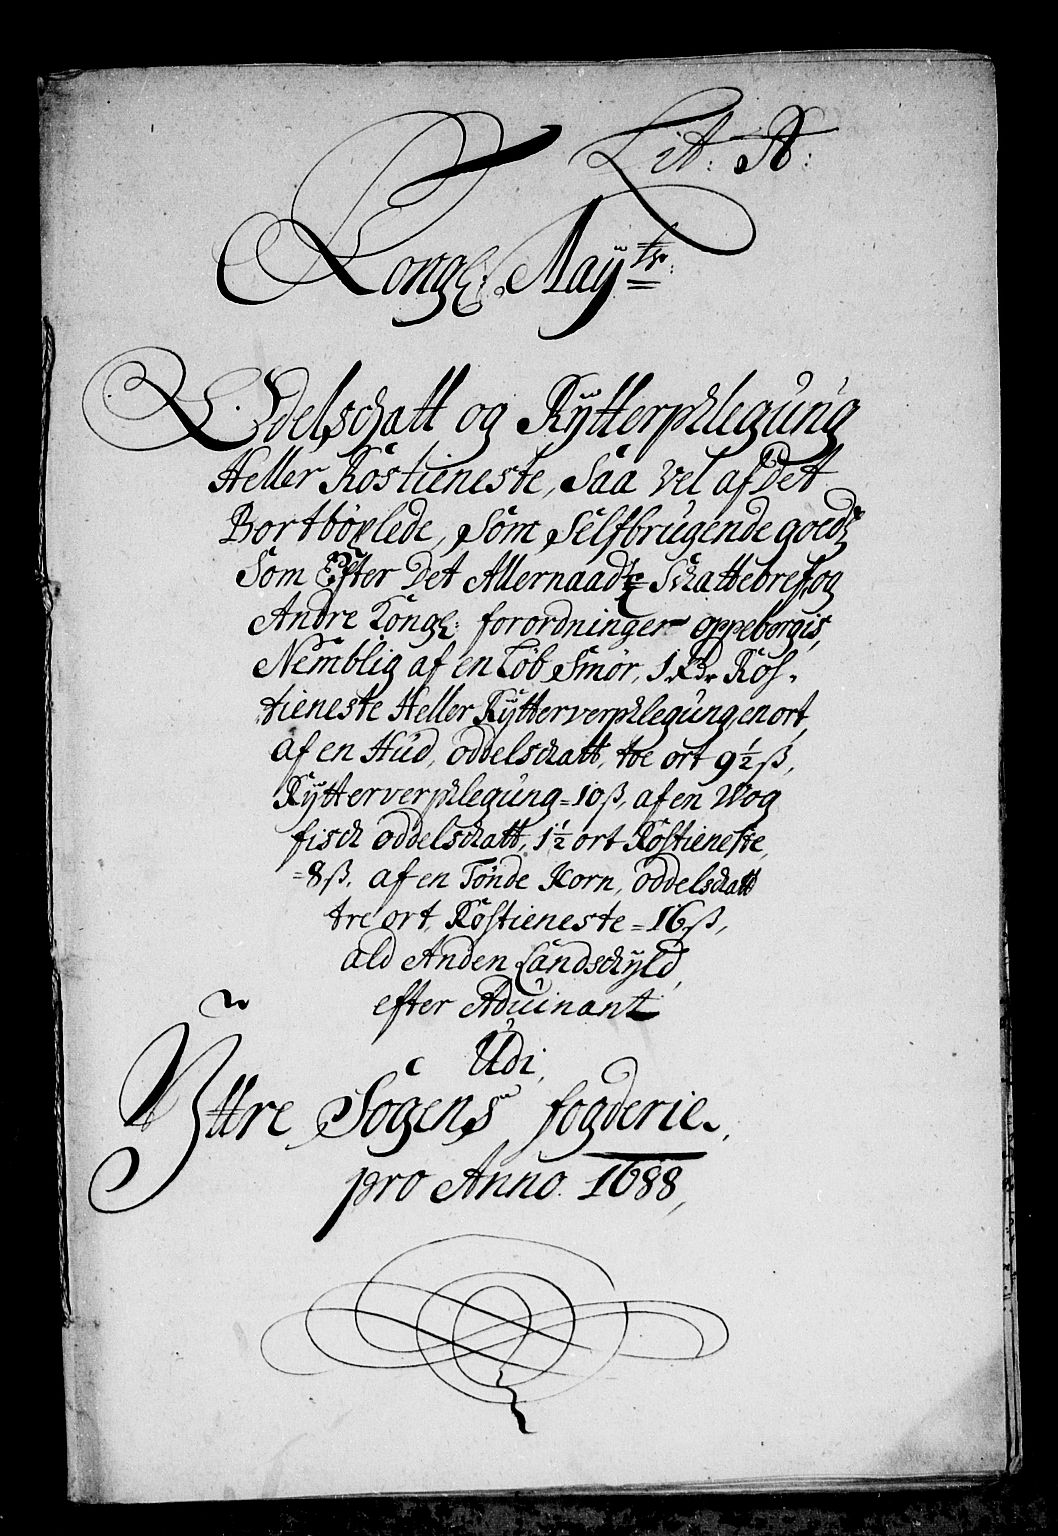 Lit: A:
Kongl: Mayts:
Odelschatt og Rytterphlegung
Heller Rostieneste, Saa vel af Det
Bortbøxlede, Som Selfbrugende goeds
Som Efter Det Allernaadse Schattebref og
Andre Kongl: forordninger oppebergis,
Nemblig af en Løb Smør, 1 Rdr Ros-
tieneste Heller Rytterverphlegung en ort,
af en Hud, oddelschatt, toe ort 9½ ß,
Rytterverphlegung = 10 ß, af en Wog
fisch oddelschatt, 1½ ort Rostieneste,
= 8 ß. af en Tønde Korn, oddelschatt
tre ort, Rostieneste = 16 ß,
ald Anden Landschyld,
efter Aduinant
Udi,
Yttre Sogens fogderie,
pro Anno. 1688,